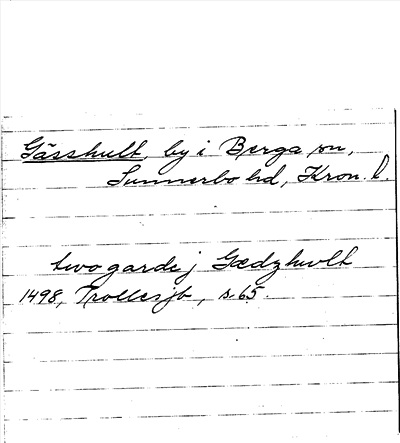 Gässhult, by i Berga sn,
Sunnerbo hd, Kron. l.
two garde j Gædzhwlt
1498, Trolles jb, s. 65.